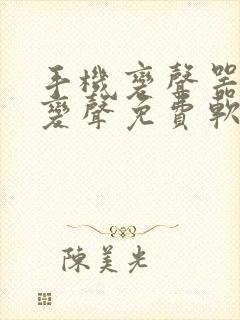 手機變聲器
變聲免費軟
陳美光